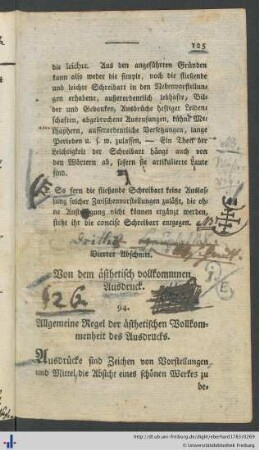 125
die leichter. Aus den angeführten Gründen
kann also weder die simple, noch die fließende
und leichte Schreibart in den Nebenvorstellun-
gen erhabene, außerordentlich lebhafte, Bil-
der und Gedanken, Ausbrüche heftiger Leiden-
schaften, abgebrochene Ausrufungen, kühne Me-
thaphern, außerordentliche Versetzungen, lange
Perioden u. s. w. zulassen. — Ein Theil der
Leichtigkeit der Schreibart hängt auch von
den Wörtern ab, sofern sie artikulirte Laute
sind.
So fern die fließende Schreibart keine Auslas-
sung solcher Zwischenvorstellungen zuläßt, die oh-
ne Anstrengung nicht können ergänzt werden,
steht ihr die concise Schreibart entgegen.
Dritter
Vierter Abschnitt.
Von dem ästhetisch vollkommnen
Ausdruck.
94.
Allgemeine Regel der ästhetischen Vollkom-
menheit des Ausdrucks.
Ausdrücke sind Zeichen von Vorstellungen
und Mittel, die Absicht eines schönen Werkes zu
be-
http://dl.ub.uni-freiburg.de/diglit/eberhard1783/0269
© Universitätsbibliothek Freiburg